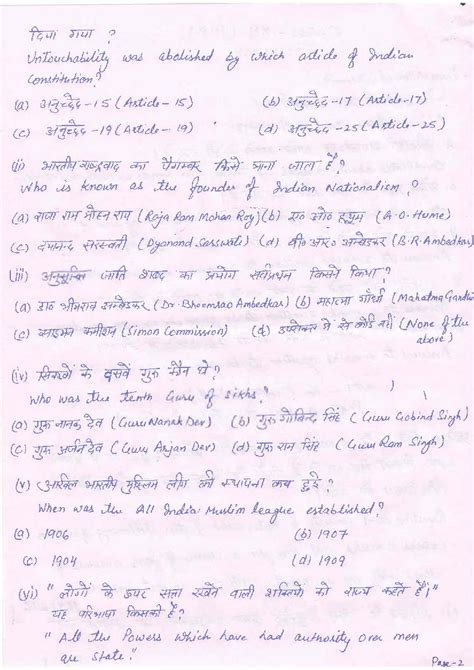 दिया गया ?
Untouchability was abolished by which article of Indian
Constitution?
(a) अनुच्छेद-15 (Article-15) (b) अनुच्छेद-17 (Article-17)
(c) अनुच्छेद-19 (Article-19) (d) अनुच्छेद-25 (Article-25)
(ii) भारतीय राष्ट्रवाद का पैगम्बर किसे माना जाता है?
Who is known as the founder of Indian Nationalism?
(a) राजा राम मोहन राय (Raja Ram Mohan Roy) (b) ए० ओ० ह्यूम (A.O. Hume)
(c) दयानन्द सरस्वती (Dyanand Sarswati) (d) बी० आर० अम्बेडकर (B.R. Ambedkar)
(iii) अनुसूचित जाति शब्द का प्रयोग सर्वप्रथम किसने किया?
(a) डा० भीमराव अम्बेडकर (Dr. Bheemrao Ambedkar) (b) महात्मा गाँधी (Mahatma Gandhi
(c) साइमन कमीशन (Simon Commission) (d) उपरोक्त में से कोई नहीं (None of the
above)
(iv) सिक्खों के दसवें गुरु कौन थे?
Who was the tenth Guru of Sikhs?
(a) गुरु नानक देव (Guru Nanak Dev) (b) गुरु गोबिन्द सिंह (Guru Gobind Singh)
(c) गुरु अर्जन देव (Guru Arjan Dev) (d) गुरु राम सिंह (Guru Ram Singh)
(v) अखिल भारतीय मुस्लिम लीग की स्थापना कब हुई?
When was the All India Muslim league established?
(a) 1906 (b) 1907
(c) 1904 (d) 1909
(vi) "लोगों के ऊपर सत्ता रखने वाली शक्तियों को राज्य कहते हैं।"
यह परिभाषा किसकी है?
"All the Powers which have had authority over men
are State."
Page-2